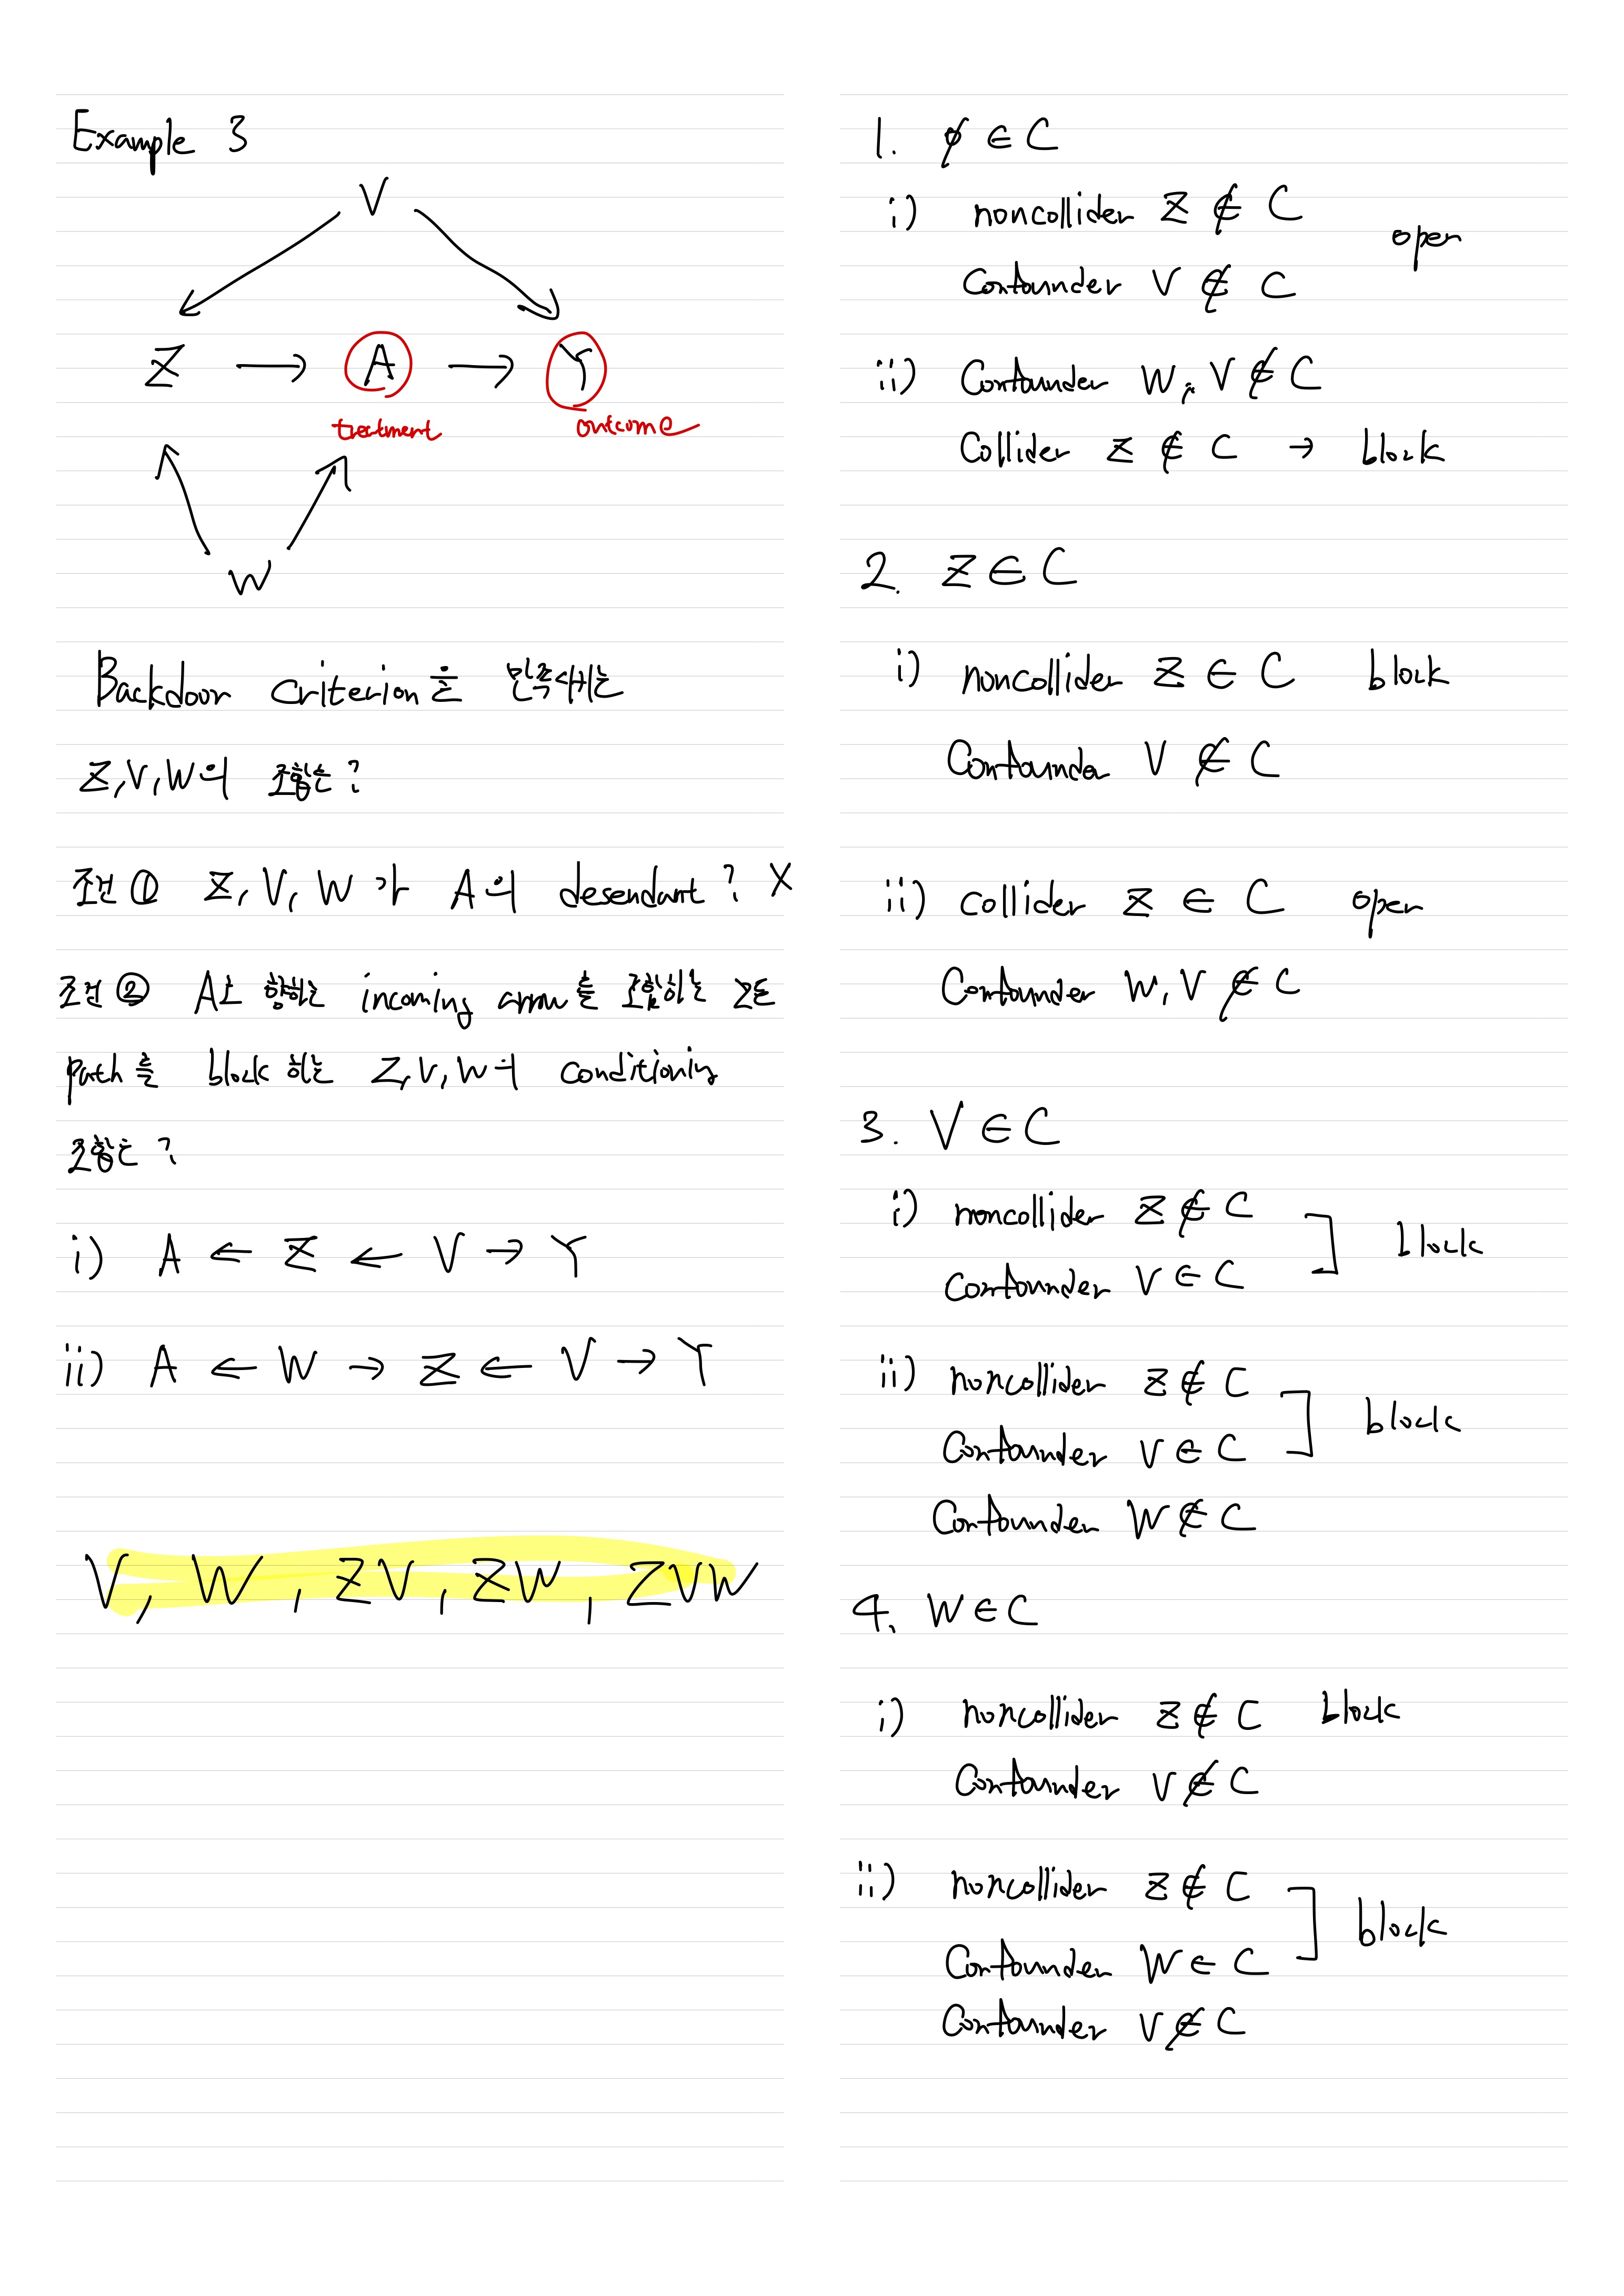 Example 3
V
Z → A → Y
treatment outcome
W
Backdoor criterion을 만족시키는
Z, V, W의 조합은?
조건 ① Z, V, W 가 A의 desendant? X
조건 ② A로 향하는 incoming arrow를 포함하는 모든
path를 block 하는 Z, V, W의 conditioning
조합은?
i) A ← Z ← V → Y
ii) A ← W → Z ← V → Y
V, W, ZV, ZW, ZVW
1. ∅ ∈ C
i) noncollider Z ∉ C open
Confounder V ∉ C
ii) Confounder W, V ∉ C
Collider Z ∉ C → block
2. Z ∈ C
i) noncollider Z ∈ C block
Confounder V ∉ C
ii) collider Z ∈ C open
Confounder W, V ∉ C
3. V ∈ C
i) noncollider Z ∉ C
Confounder V ∈ C ] block
ii) noncollider Z ∉ C
Confounder V ∈ C ] block
Confounder W ∉ C
4. W ∈ C
i) noncollider Z ∉ C block
Confounder V ∉ C
ii) noncollider Z ∉ C
Confounder W ∈ C ] block
Confounder V ∉ C